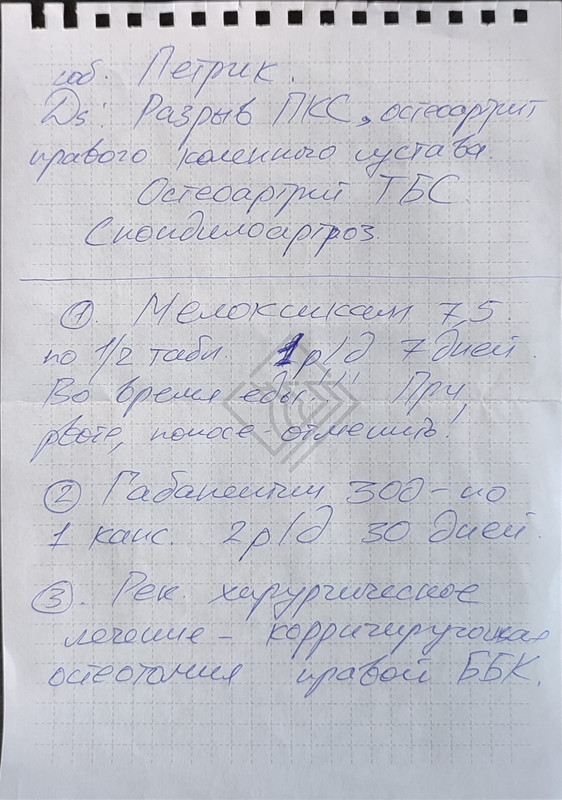 соб. Петрик.
Ds: Разрыв ПКС, остеоартрит
правого коленного сустава.
Остеоартрит ТБС
Спондилоартроз.
① Мелоксикам 7,5
по 1/2 табл. 1 р/д 7 дней.
Во время еды!!! При
рвоте, поносе отменить!
② Габапентин 300 - по
1 капс. 2 р/д 30 дней.
③. Рек. хирургическое
лечение - корригирующая
остеотомия правой ББК.